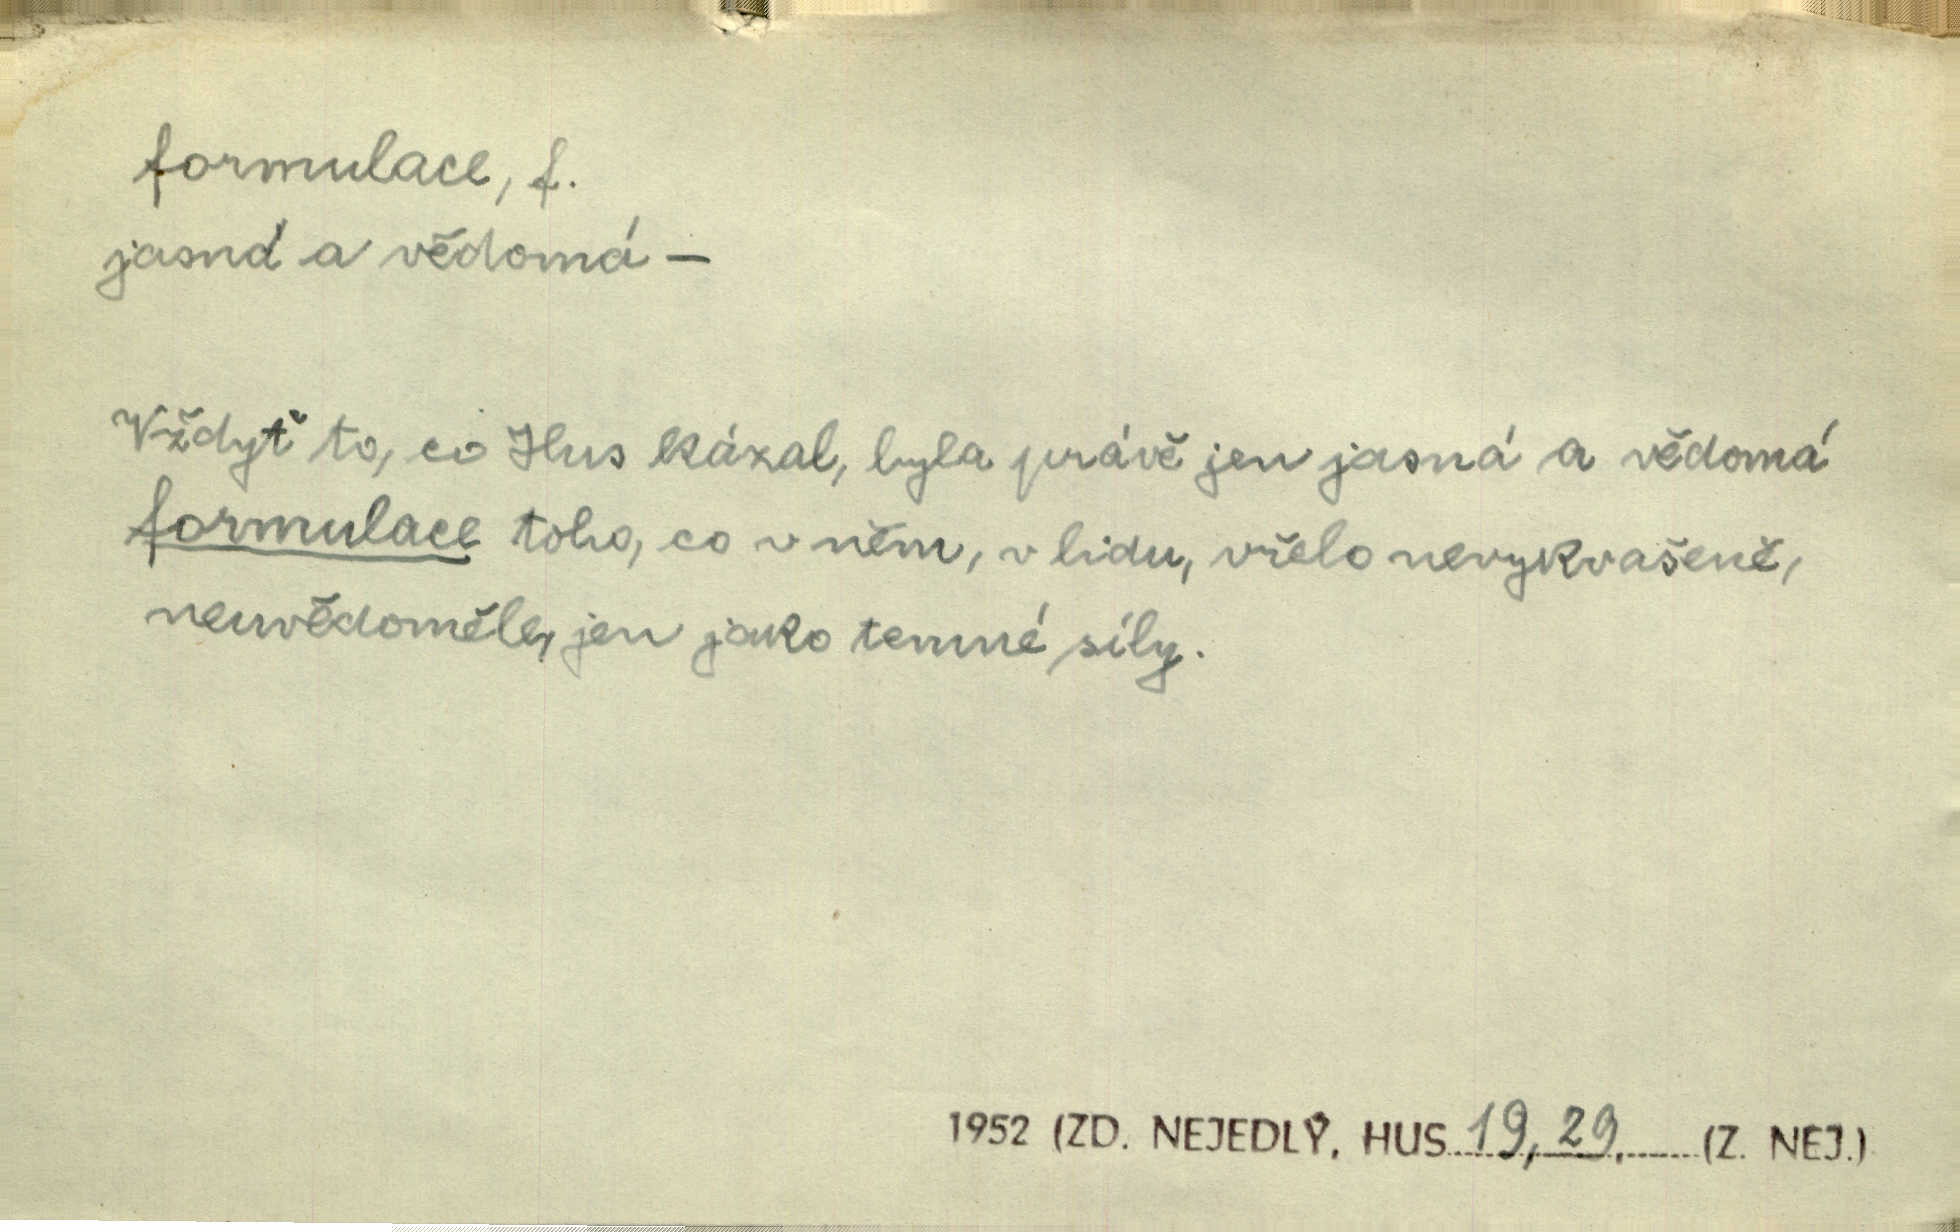 formulace, f.
jasná a vědomá –
Vždyť to, co Hus kázal, byla právě jen jasná a vědomá
formulace toho, co v něm, v lidu, vřelo nevykvašeně,
neuvědoměle, jen jako temné síly.
1952 (ZD. NEJEDLÝ, HUS 19, 29. (Z. NEJ.)